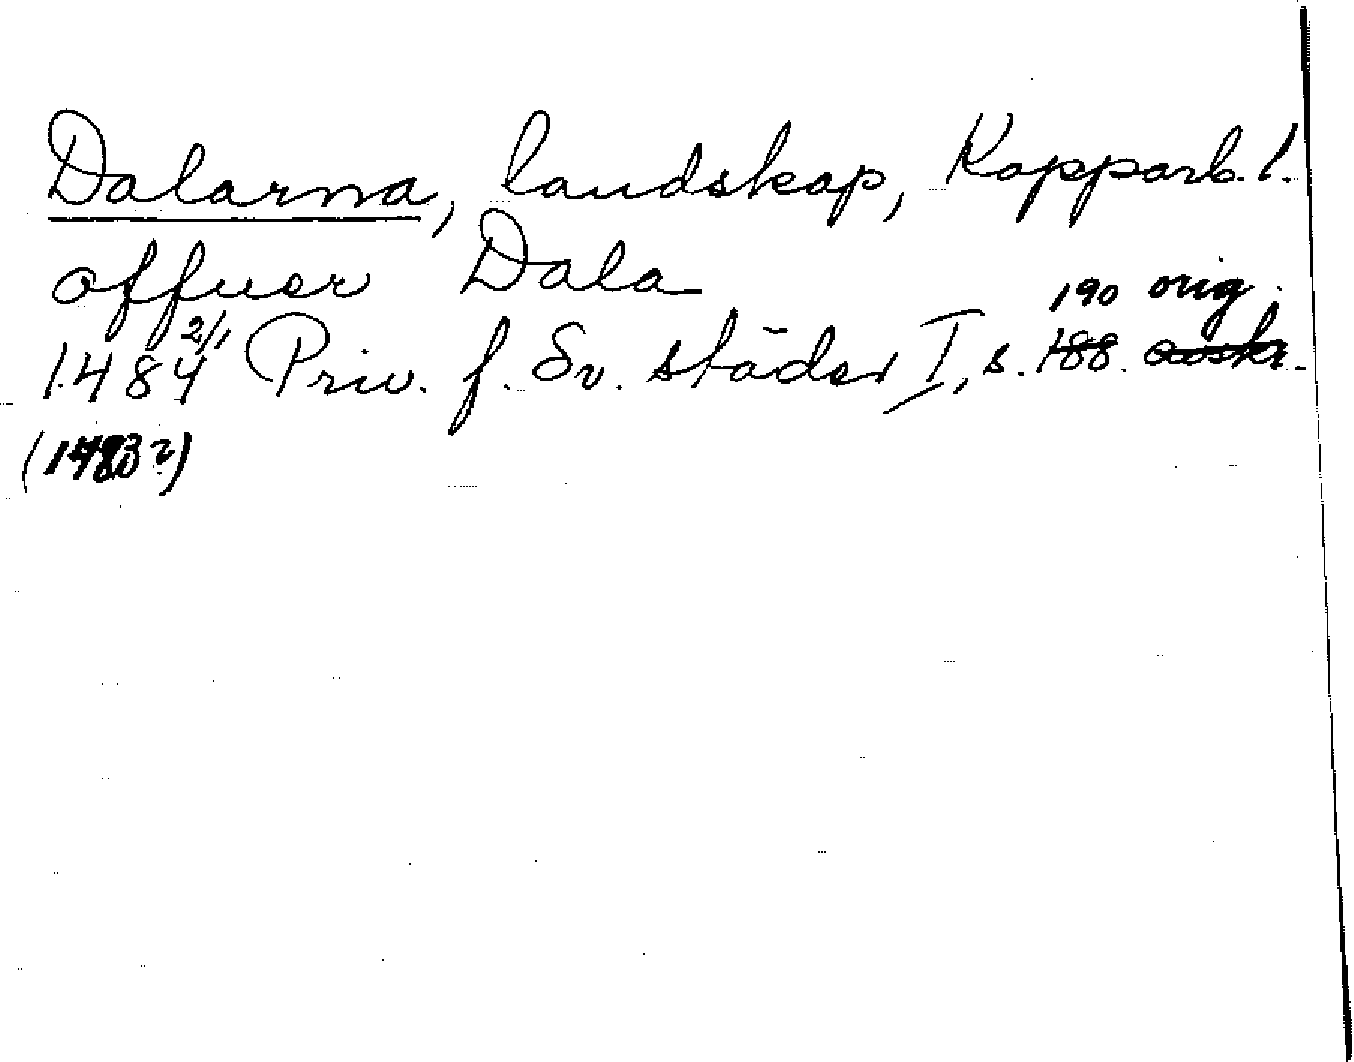 Dalarna, landskap, Kopparb. l.
offuer Dala
1484 2/1 Priv. f. Sv. städer I, s. 188. avskr.
190 orig.